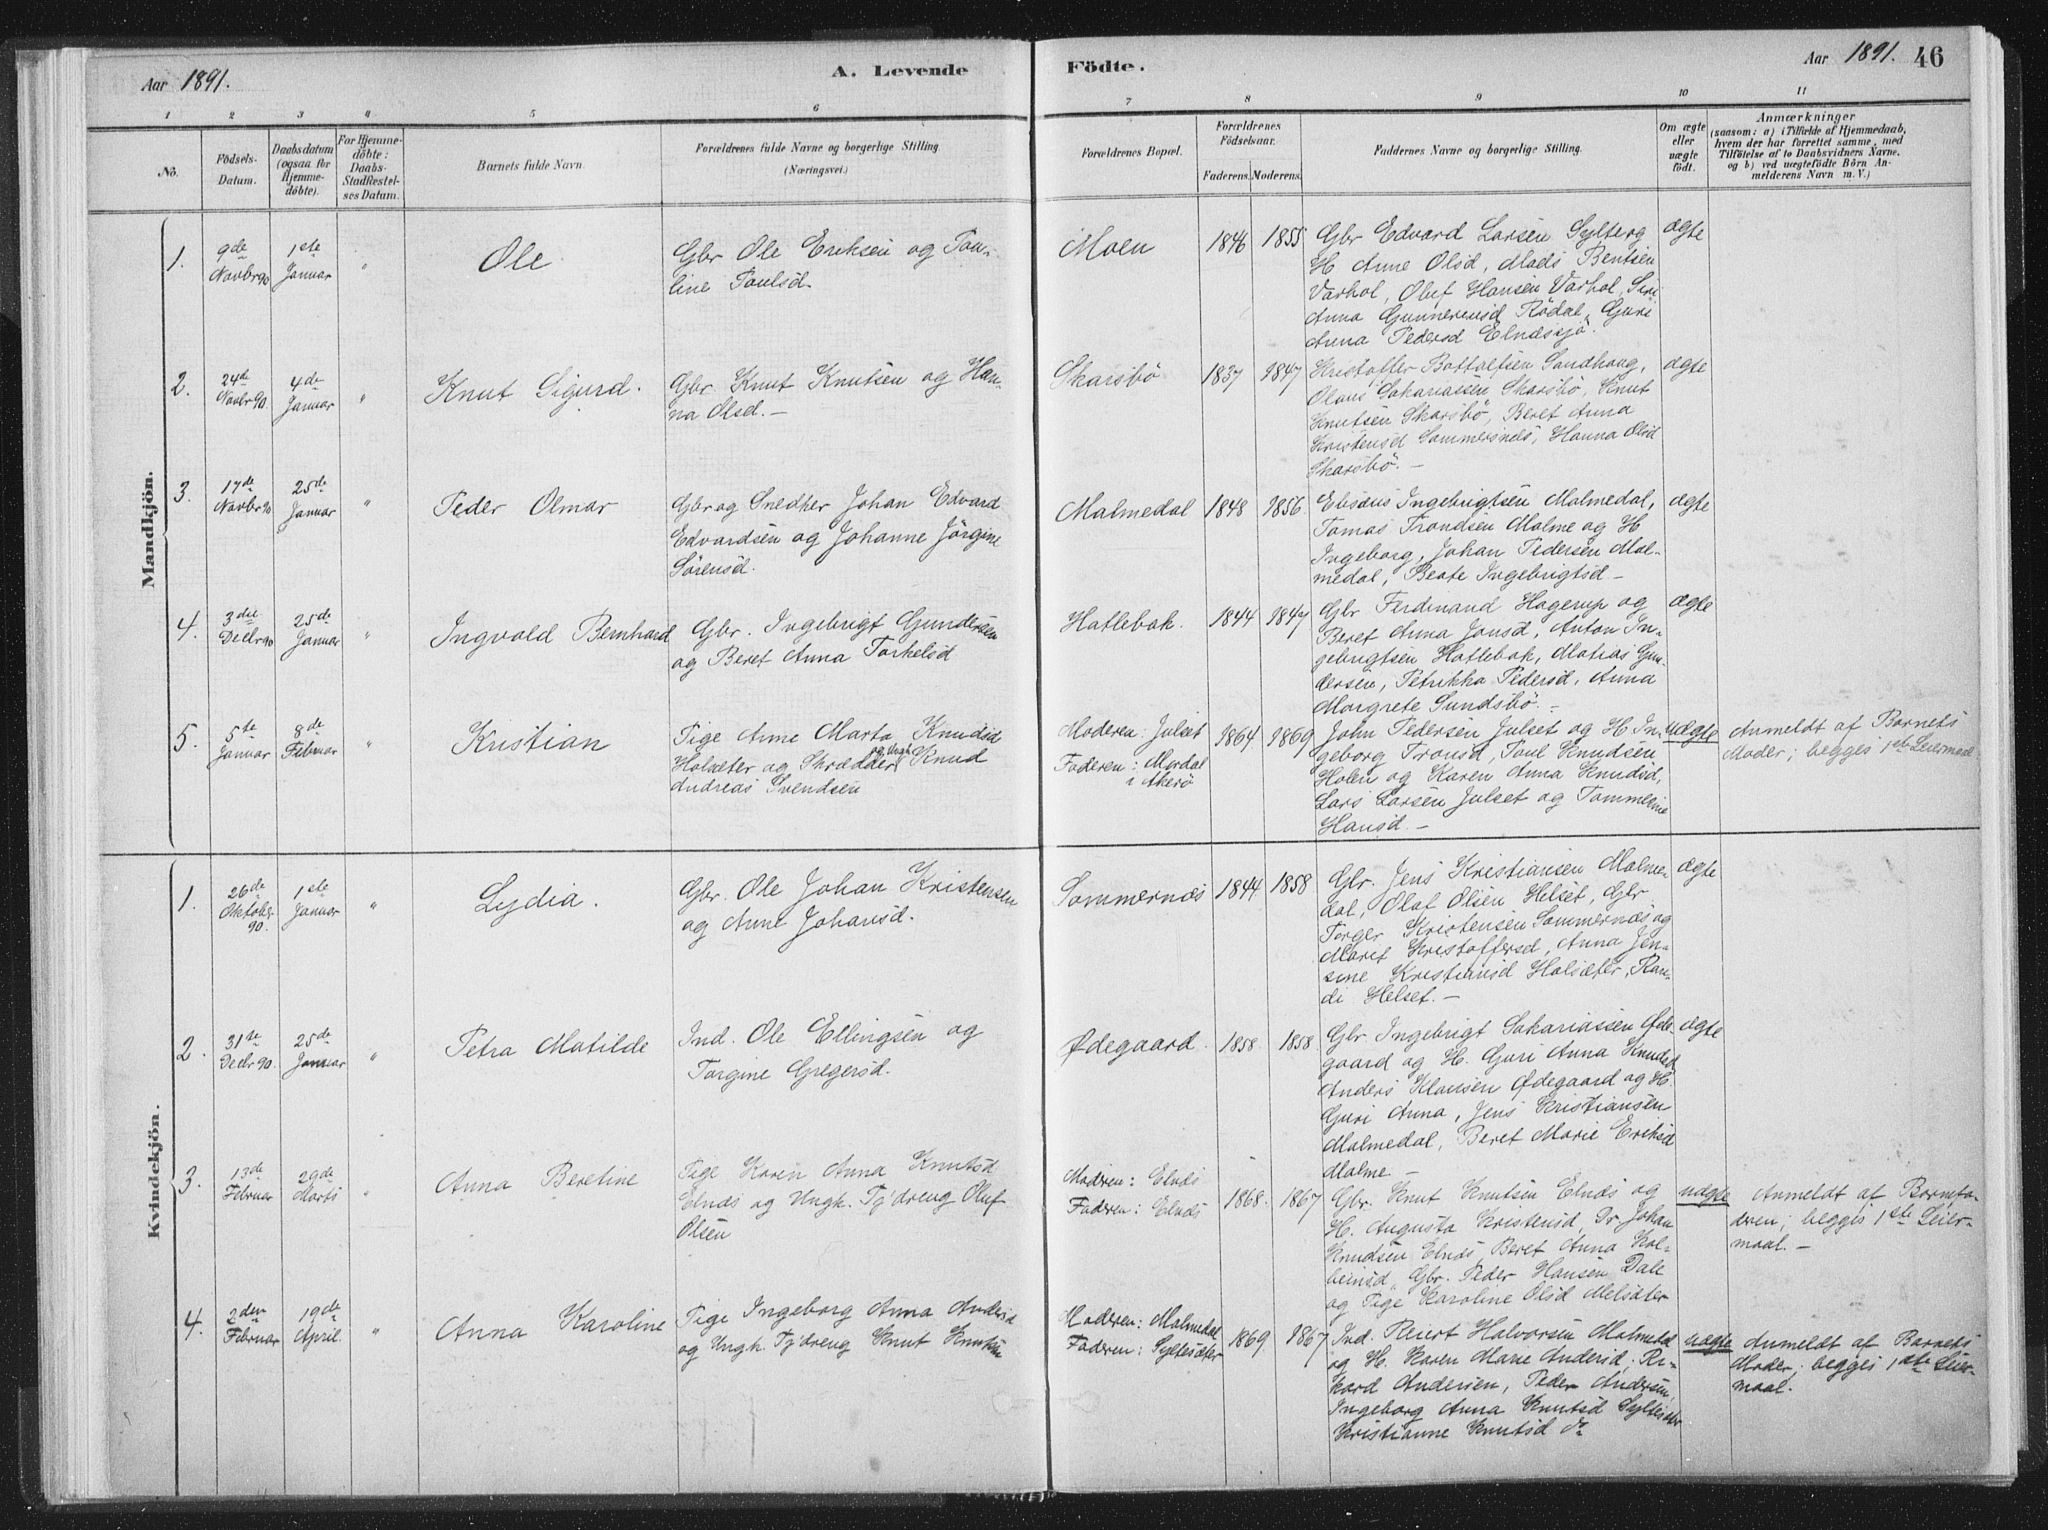 Aar 1891.
A. Levende
Födte.
Aar 1891. 46
1 2 3 4 5 6 7 8 9 10 11
No.
Födsels-
Datum.
Daabsdatum
(ogsaa for
Hjemme-
döbte).
For Hjemme-
döbte:
Daabs-
Stadfæstel-
ses Datum.
Barnets fulde Navn.
Forældrenes fulde Navne og borgerlige Stilling.
(Næringsvei.)
Forældrenes Bopæl.
Forældrenes
Födselsaar.
Faderens. Moderens.
Faddernes Navne og borgerlige Stilling.
Om ægte
eller
uægte
födt.
Anmærkninger
(saasom: a) i Tilfælde af Hjemmedaab,
hvem der har forrettet samme, med
Tilföielse af to Daabsvidners Navne.
og b) ved uægtefödte Börn An-
melderens Navn m. V.)
Mandkjön.
1.
9de
Novbr 90
1ste
Januar
"
Ole
Gbr Ole Eriksen og Pau-
line Paulsd.
Moen
1846 1855
Gbr Edvard Larsen Sylterg
H Anne Olsd, Mads Bentsen
Varhol, Oluf Hansen Varhol, Siri
Anna Gunnerensd Rödal, Guri
Anna Pedersd Elnæssjö.
ægte
2.
24de
Novbr 90.
4de
Januar
"
Knut Sigurd.
Gbr. Knut Knutsen og Han-
na Olsd. —
Skarsbö
1837 1847
Kristoffer Bottolfsen Sandhaug,
Olaus Sakariassen Skarsbö, Knut
Knutsen Skarsbö, Beret Anna
Kristensd Sommersnes, Hanna Olsd
Skarsbö. —
ægte
3.
17de
Novbr 90
25de
Januar
"
Peder Olmar
Gbr og Snedker Johan Edvard
Edvardsen og Johanne Jörgine
Sörensd.
Malmedal
1848 1856
Ebsæus Ingebrigtsen Malmedal,
Tomas Trondsen Malme og H
Ingeborg, Johan Pedersen Mal-
medal, Beate Ingebrigtsd —
ægte
4.
3die
Decbr 90
25de
Januar
"
Ingvald Bernhard
Gbr. Ingebrigt Gundersen
og Beret Anna Torkelsd
Hatlebak.
1844 1847
Gbr Ferdinand Hagerup og
Beret Anna Jonsd, Anton In-
gebrigtsen Hatlebak, Matias Gun-
dersen, Petrikka Pedersd, Anna
Margrete Sundsbö. —
ægte
5.
5te
Januar
8de
Februar
"
Kristian
Pige Anne Marta Knudsd
Holsæter og Skrædder Ungk. Knud
Andreas Svendsen
Moderen: Julset
Faderen: Mordal
i Akerö
1864 1869
John Pedersen Julset og H In-
geborg Tronsd, Poul Knudsen
Holen og Karen Anna Knudsd,
Lars Larsen Julset og Tommesine
Hansd. —
uægte
Anmeldt af Barnets
Moder; begges 1ste Leiermaal
Kvindekjön.
1.
26de
Oktober
90.
1ste
Januar
"
Lydia.
Gbr. Ole Johan Kristensen
og Anne Johansd.
Sommernæs
1844 1858
Gbr. Jens Kristiansen Malme-
dal, Olaf Olsen Helset, Gbr
Torger Kristensen Sommernæs og
Marit Kristoffersd, Anna Jen-
sine Kristiansd Holsæter, Ran-
di Helset. —
ægte
2.
31te
Decbr 90.
25de
Januar
"
Petra Matilde
Ind. Ole Ellingsen og
Torgine Gregersd.
Ødegaard.
1858. 1858.
Gbr Ingebrigt Sakariassen Øde-
gaard og H. Guri Anna Knudsd
Anders Klausen Ødegaard og H.
Guri Anna, Jens Kristiansen
Malmedal, Beret Marie Eriksd
Malme —
ægte
3.
13de
Februar
29de
Marts
"
Anna Beretine
Pige Karen Anna Knutsd
Elnæs og Ungk. Tj'dreng Oluf
Olsen
Moderen: Elnæs
Faderen: Elnæs
1868. 1867
Gbr. Knut Knutsen Elnæs og
H. Augusta Kristensd, Dr. Johan
Knudsen Elnæs, Beret Anna Kol-
beinsd, Gbr. Peder Hansen Dale
og Pige Karoline Olsd Melsæter
uægte
Anmeldt af Barnefa-
deren; begges 1ste Leier-
maal. —
4.
2den
Februar
19de
April.
"
Anna Karoline
Pige Ingeborg Anna Andersd
og Ungk. Tj'dreng Knut Knutsen
Moderen: Malmedal
Faderen: Syltesæter
1869. 1867
Ind. Reiert Halvorsen Malmedal
og H. Karen Marie Andersd, Ri-
kard Andersen, Peder Andersen,
Ingeborg Anna Knutsd Syltesæter
Kristianne Knutsd do
uægte
Anmeldt af Barnets
Moder; begges 1ste Leier-
maal.